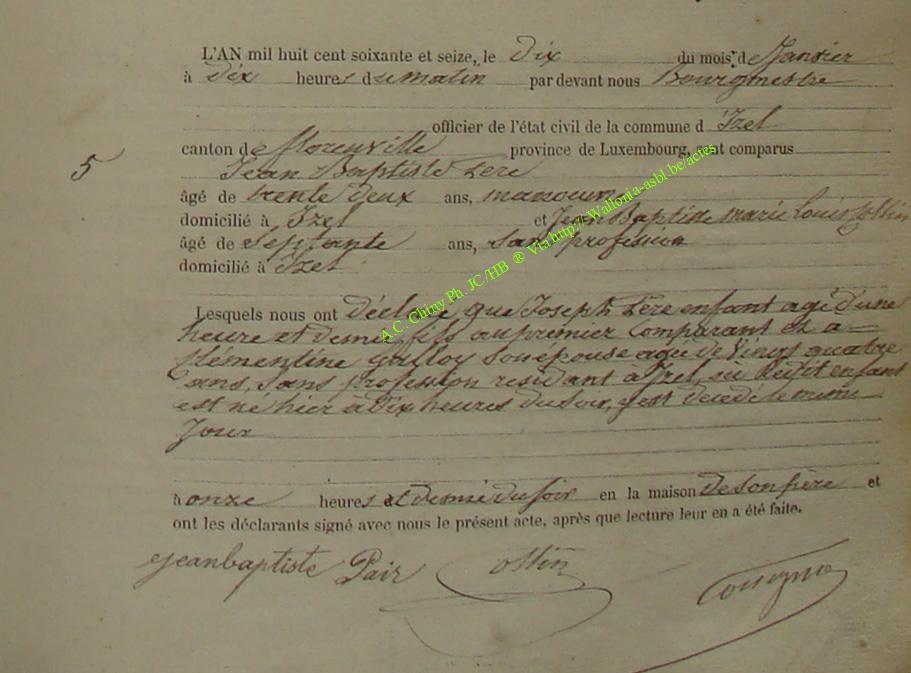 L'AN mil huit cent soixante et seize, le dix du mois de Janvier
à dix heures du matin par devant nous Bourgmestre
officier de l'état civil de la commune d Izel
canton de florenville province de Luxembourg, ont comparus
5
Jean Baptiste
âgé de trente deux ans, manoeuvre
domicilié à Izel et Jean Baptiste marie Louis
âgé de Septante ans, sans profession
domicilié à Izel
Lesquels nous ont déclaré que Joseph enfant agé d'une
heure et demie fils au premier Comparant et a
Clémentine son épouse agée de Vingt quatre
ans, sans profession residant à Izel, où ledit enfant
est né hier à Dix heures du soir, y est decedé le meme
Jour
à onze heures et demie du soir en la maison de son père et
ont les déclarants signé avec nous le présent acte, après que lecture leur en a été faite.
jeanbaptiste
A.C. Chiny Ph. JC/HB ® Via http://Wallonia-asbl.be/actes